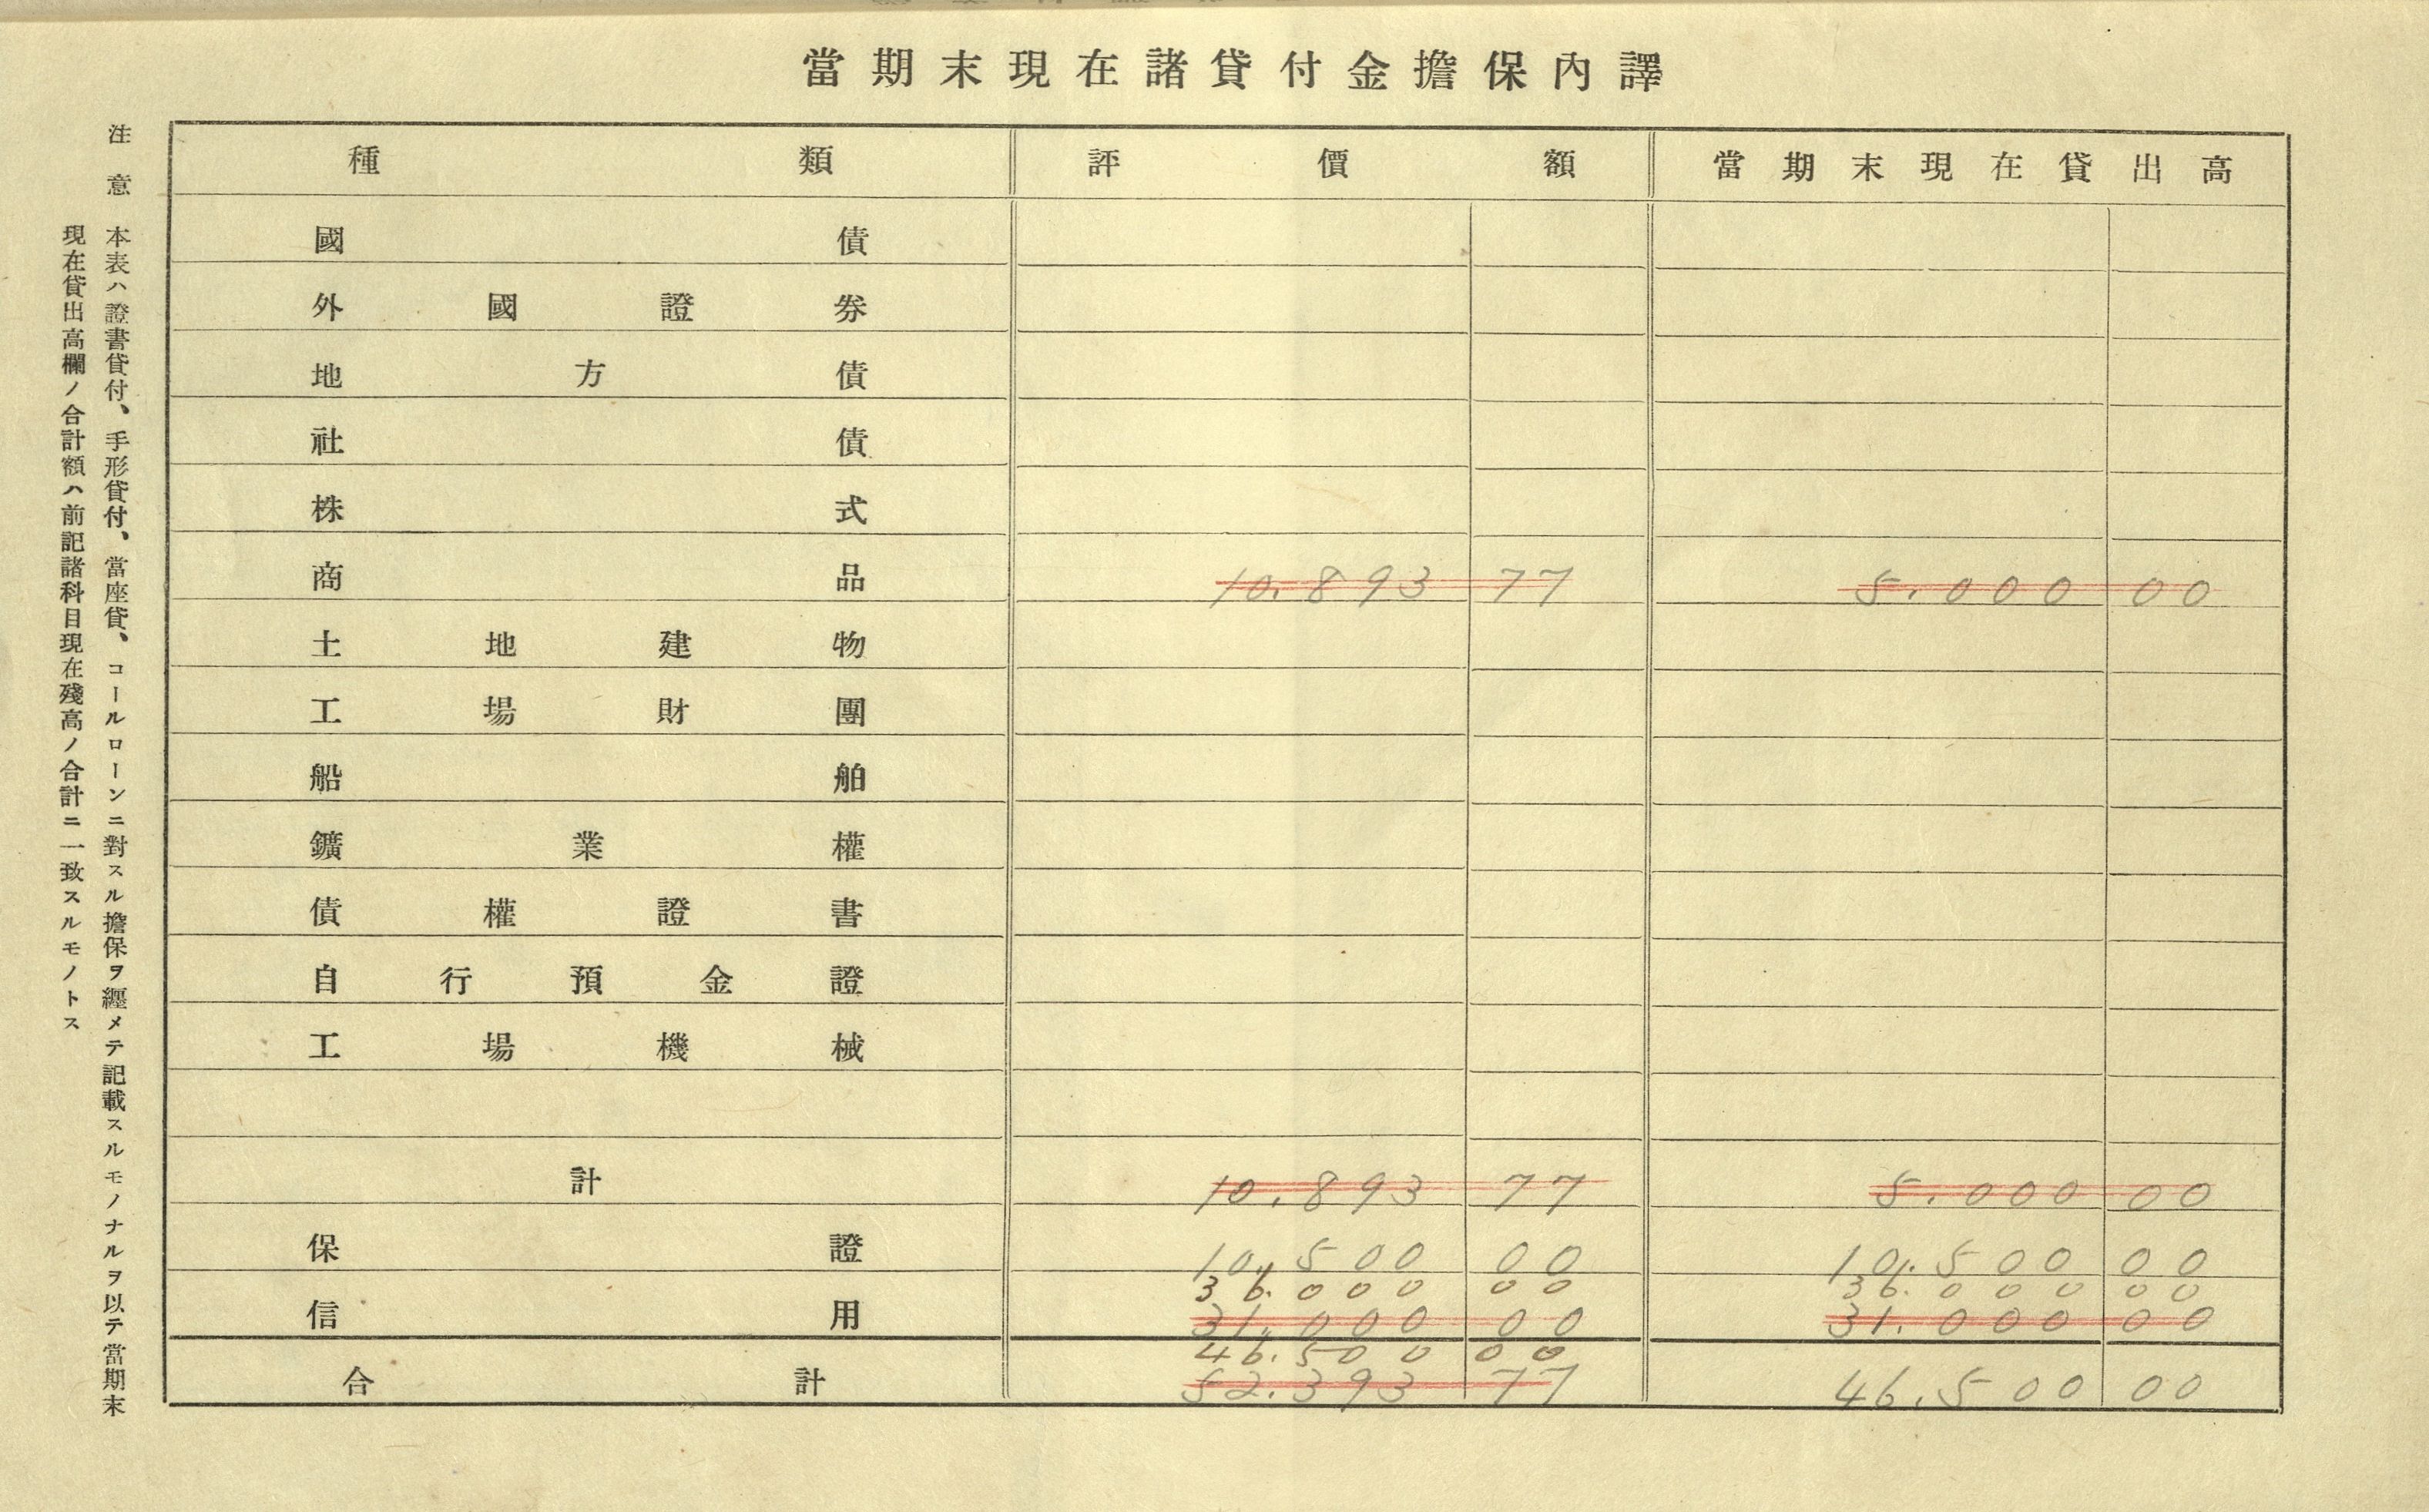 當期末現在諸貸付金擔保內譯
種類 評價額 當期末現在貸出高
國債
外國證券
地方債
社債
株式
商品 10.893 77 5.000 00
土地建物
工場財團
船舶
鑛業權
債權證書
自行預金證
工場機械
計 10.893 77 5.000 00
保證 10.500 00 10.500 00
36.000 00 36.000 00
信用 31.000 00 31.000 00
46.500 00
合計 52.393 77 46.500 00
注意 本表ハ證書貸付、手形貸付、當座貸、コールローンニ對スル擔保ヲ纒メテ記載スルモノナルヲ以テ當期末
現在貸出高欄ノ合計額ハ前記諸科目現在殘高ノ合計ニ一致スルモノトス